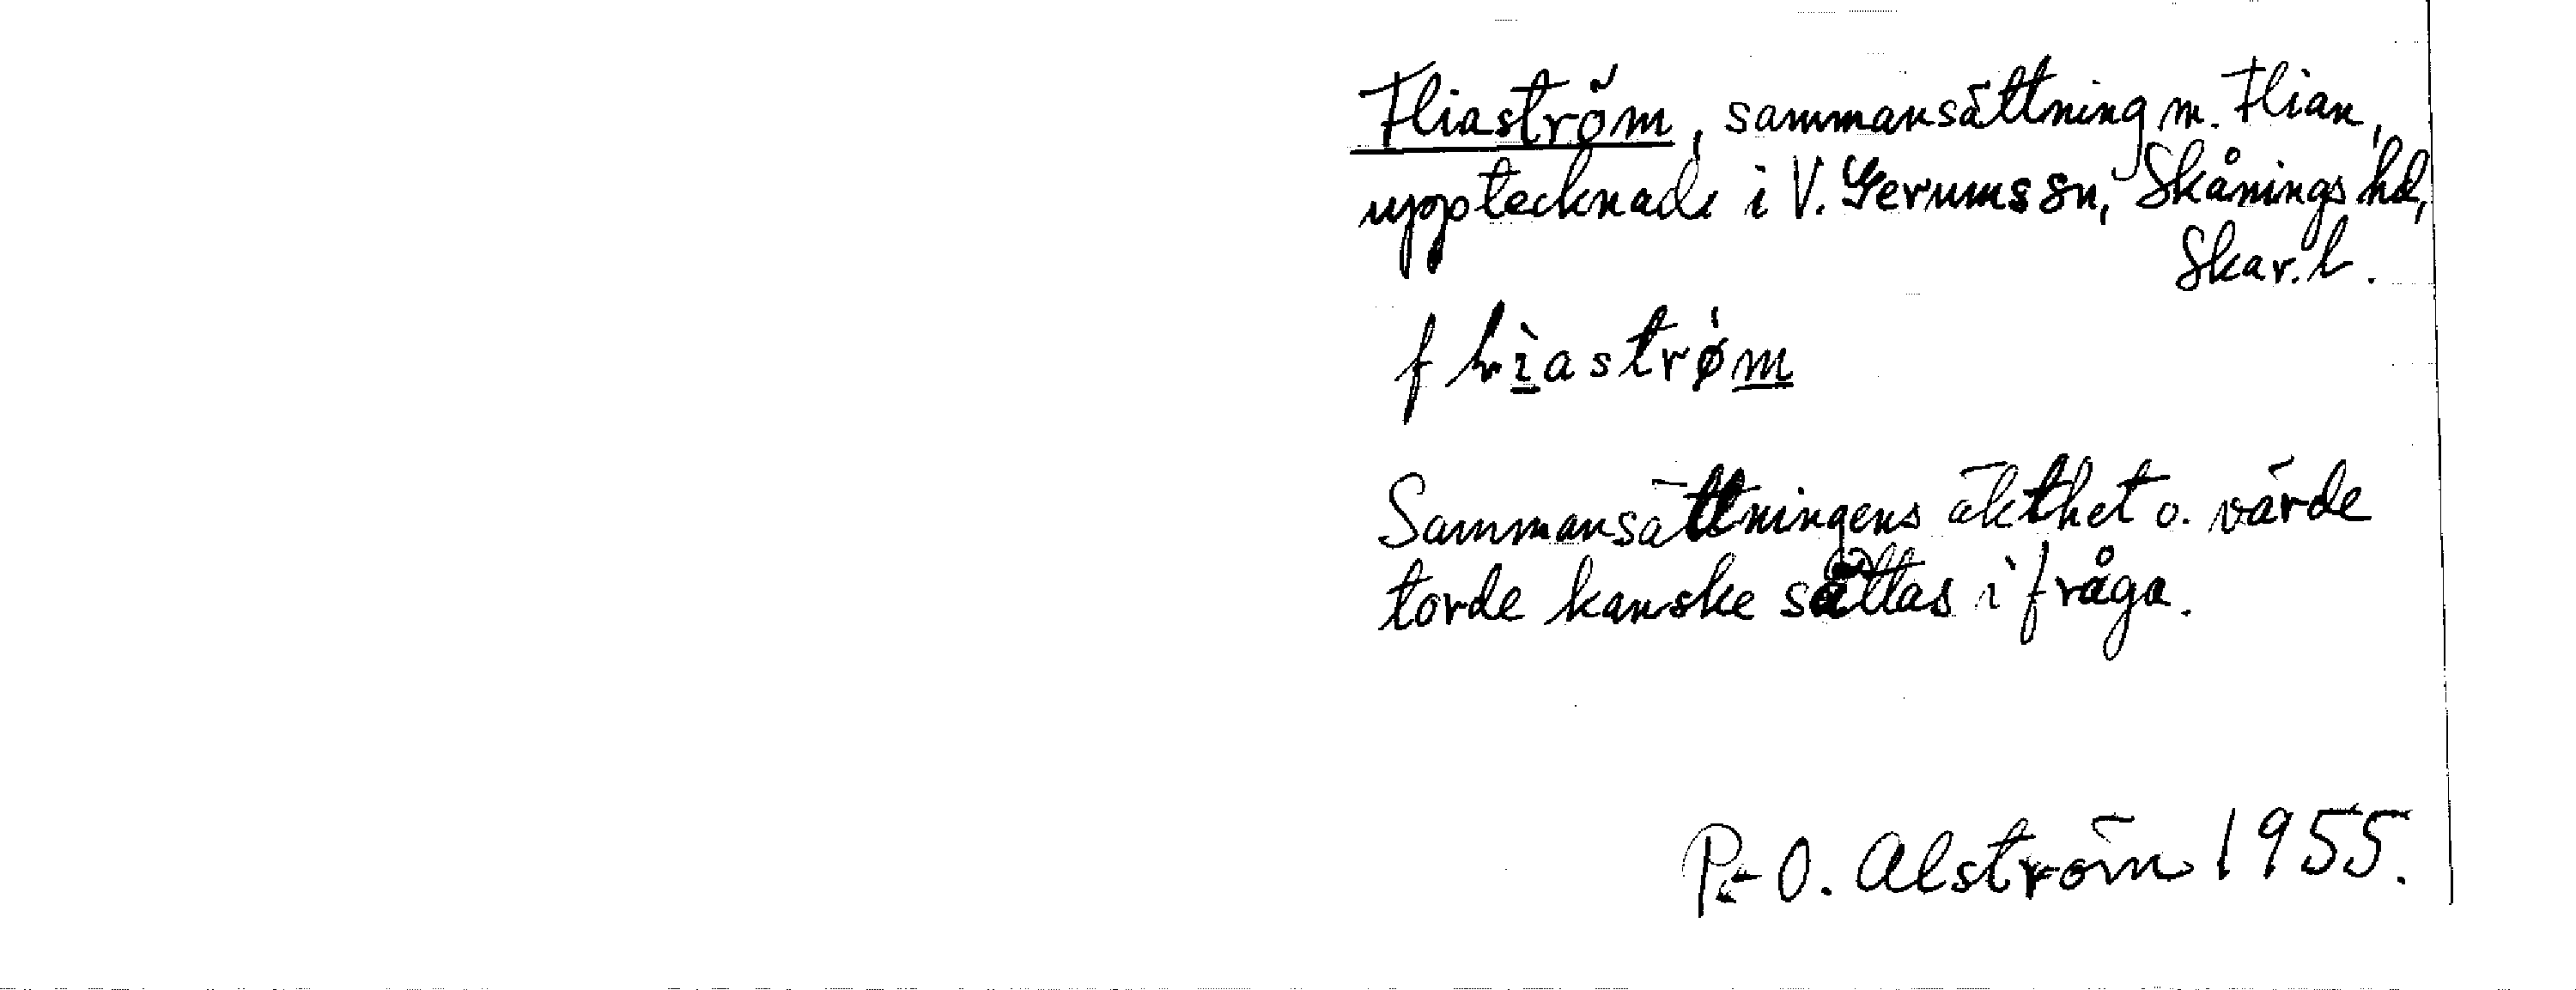 Fliaström, sammansättning m. Flian,
upptecknade i V. Gerums sn, Skånings hd,
Skar. l.
flìaströ́m
Sammansättningens äkthet o. värde
torde kanske sättas i fråga.
P.-O. Alström 1955.